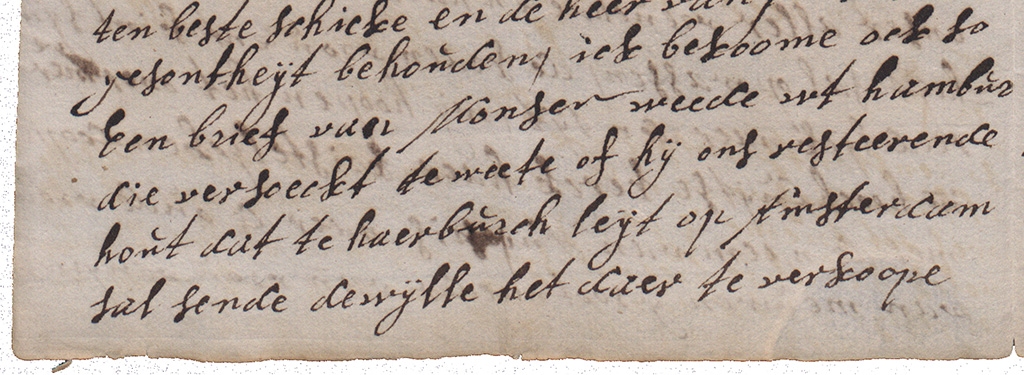 ten beste schicke en de heer van
gesontheyt behouden, ick bekoome ock so
Een brief van Monser weede wt hambur
die versoeckt te weete of hij ons resteerende
hout dat te haerburch leyt op Amsterdam
sal sende dewylle het daer te verkoope